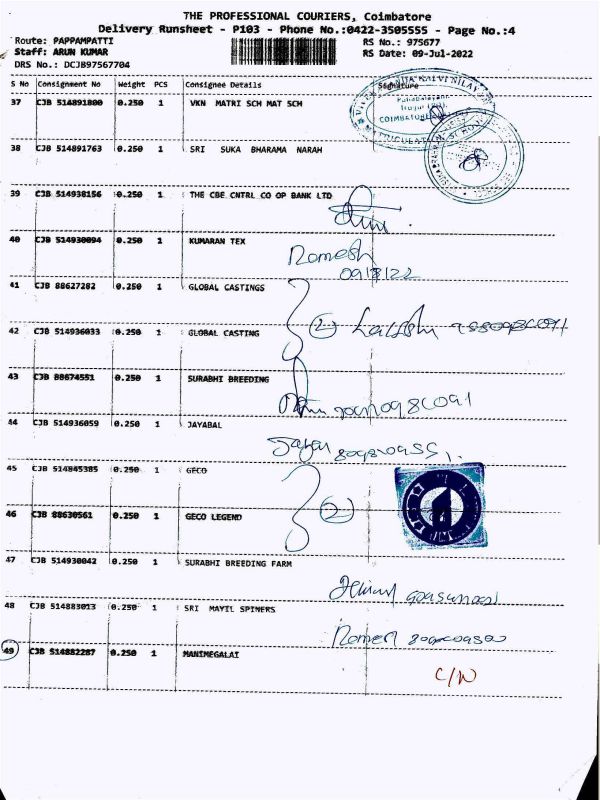 THE PROFESSIONAL COURIERS, Coimbatore
Delivery Runsheet - P103 - Phone No.:0422-3505555 - Page No.:4
Route: PAPPAMPATTI RS No.: 975677
Staff: ARUN KUMAR RS Date: 09-Jul-2022
DRS No.: DCJB97567704
S No Consignment No Weight PCS Consignee Details Signature
37 CJB 514891800 0.250 1 VKN MATRI SCH MAT SCH
COIMBATORE
38 CJB 514891763 0.250 1 SRI SUKA BHARAMA NARAH
39 CJB 514938156 0.250 1 THE CBE CNTRL CO OP BANK LTD
40 CJB 514930094 0.250 1 KUMARAN TEX
Romesh
41 CJB 88627282 0.250 1 GLOBAL CASTINGS
42 CJB 514936033 0.250 1 GLOBAL CASTING
2
43 CJB 88674551 0.250 1 SURABHI BREEDING
44 CJB 514936059 0.250 1 JAYABAL
45 CJB 514845385 0.250 1 GECO
46 CJB 88630561 0.250 1 GECO LEGEND
2
47 CJB 514930042 0.250 1 SURABHI BREEDING FARM
48 CJB 514883013 0.250 1 SRI MAYIL SPINERS
49 CJB 514882287 0.250 1 MANIMEGALAI
C/N